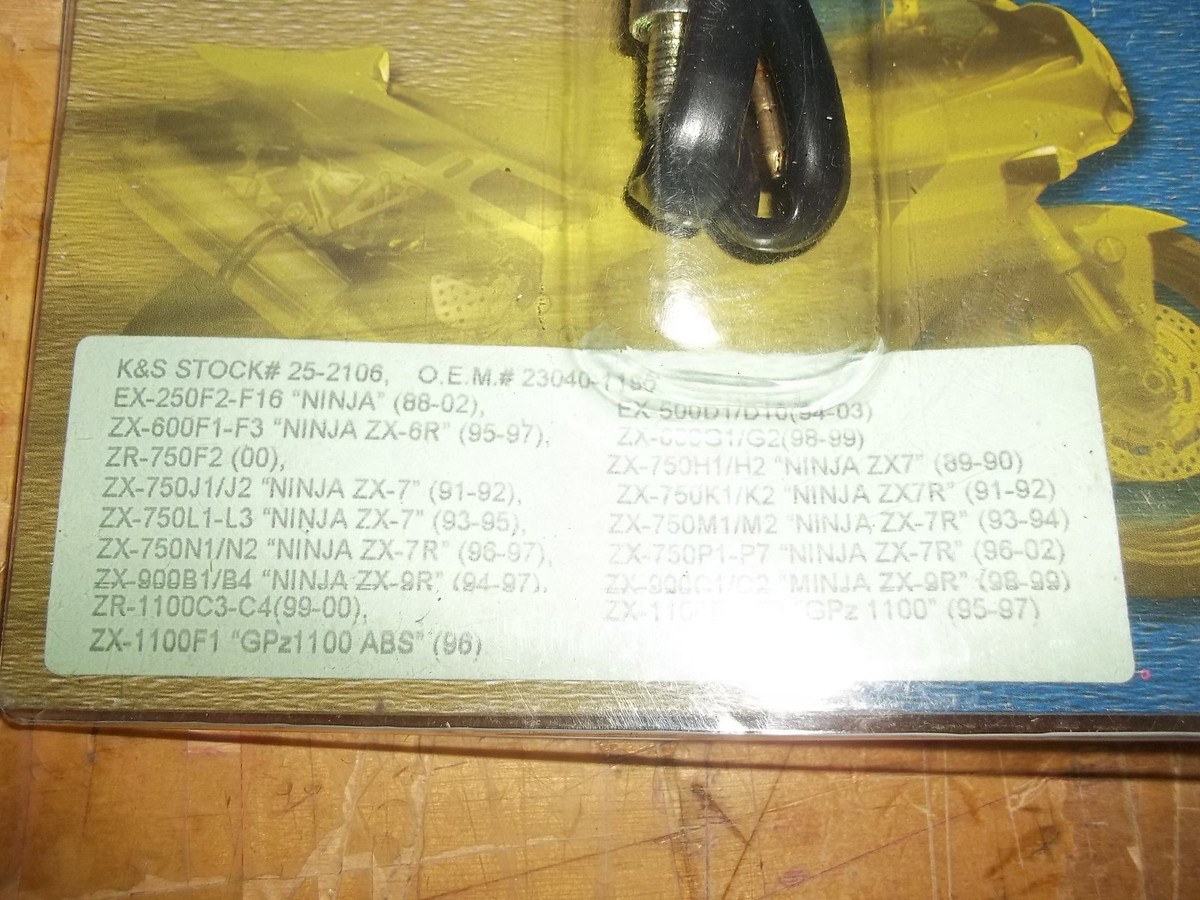 K&S STOCK# 25-2106, O.E.M.# 23040-1190
EX-250F2-F16 "NINJA" (88-02), EX-500D1/D10(94-03)
ZX-600F1-F3 "NINJA ZX-6R" (95-97), ZX-600G1/G2(98-99)
ZR-750F2 (00), ZX-750H1/H2 "NINJA ZX7" (89-90)
ZX-750J1/J2 "NINJA ZX-7" (91-92), ZX-750K1/K2 "NINJA ZX7R" (91-92)
ZX-750L1-L3 "NINJA ZX-7" (93-95), ZX-750M1/M2 "NINJA ZX-7R" (93-94)
ZX-750N1/N2 "NINJA ZX-7R" (96-97), ZX-750P1-P7 "NINJA ZX-7R" (96-02)
ZX-900B1/B4 "NINJA ZX-9R" (94-97), ZX-900C1/C2 "MINJA ZX-9R" (98-99)
ZR-1100C3-C4(99-00), "GPz 1100" (95-97)
ZX-1100F1 "GPz1100 ABS" (96)